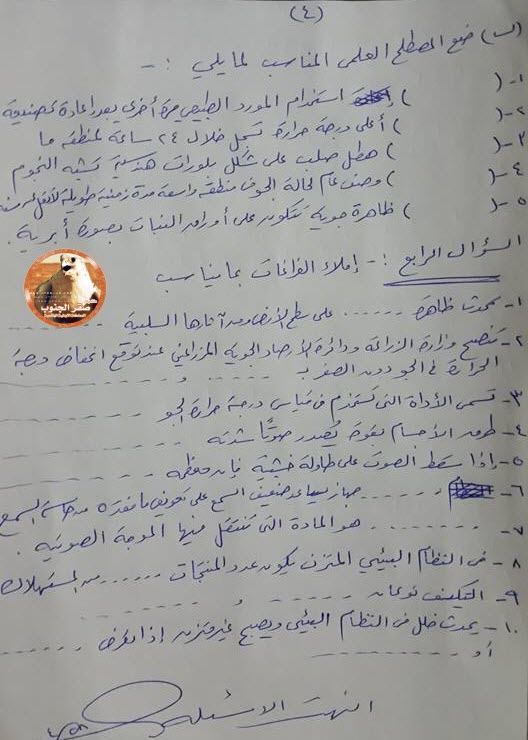 (٤)
(ب) ضع المصطلح العلمي المناسب لما يلي : -
١- ( ) استخدام المورد الطبيعي مرة أخرى بعد إعادة تصنيعه
٢- ( ) أعلى درجة حرارة تسجل خلال ٢٤ ساعة لمنطقة ما
٣- ( ) هطل صلب على شكل بلورات هندسية تشبه النجوم
٤- ( ) وصف عام لحالة الجو في منطقة واسعة مدة زمنية طويلة لا تقل عن سنة
٥- ( ) ظاهرة جوية تتكون على أوراق النبات بصورة أبرية .
السؤال الرابع : - إملاء الفراغات بما يناسب
١- تحدث ظاهرة ...... على سطح الأرض ومن آثارها السلبية
٢- تنصح وزارة الزراعة ودائرة الأرصاد الجوية المزارعين عند توقع انخفاض درجة
الحرارة في الجو دون الصفر بـ ...... و ......
٣- تسمى الأداة التي تستخدم في قياس درجة حرارة الجو
٤- طرق الأجسام بقوة يُصدر صوتًا شدته
٥- إذا سقط الصوت على طاولة خشبية فإن معظمه
٦- ....... جهاز يساعد ضعيف السمع على تعويض ما فقده من حاسة السمع
٧- ........ هو المادة التي تنتقل فيها الموجة الصوتية .
٨- في النظام البيئي المتزن يكون عدد المنتجات ...... من المستهلكات
٩- التكيف نوعان ...... و ......
١٠- يحدث خلل في النظام البيئي ويصبح غير متزن إذا تعرض
أو ......
انتهت الاسئلة
صقر الجنوب